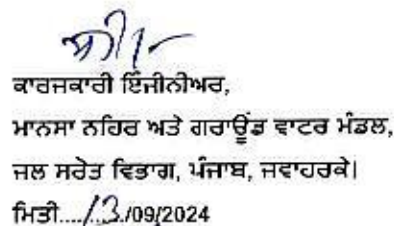 ਕਾਰਜਕਾਰੀ ਇੰਜੀਨੀਅਰ,
ਮਾਨਸਾ ਨਹਿਰ ਅਤੇ ਗਰਾਊਂਡ ਵਾਟਰ ਮੰਡਲ,
ਜਲ ਸਰੋਤ ਵਿਭਾਗ, ਪੰਜਾਬ, ਜਵਾਹਰਕੇ।
ਮਿਤੀ..../13./09/2024